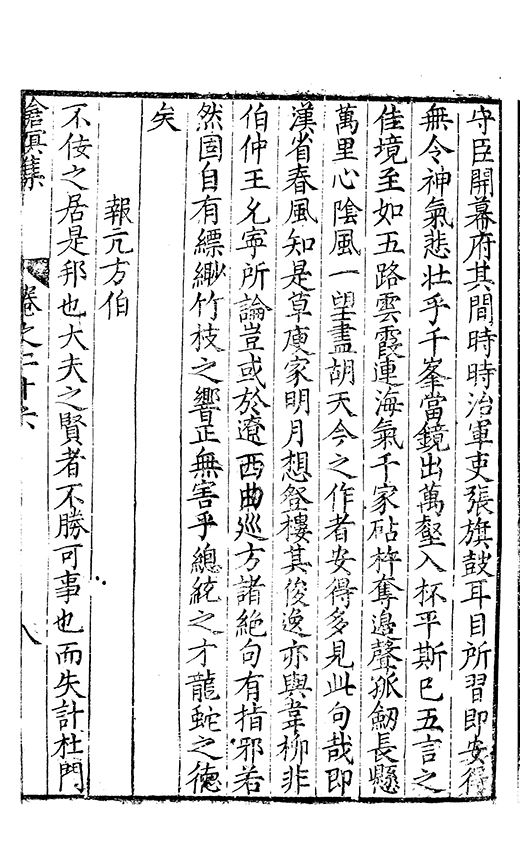 守臣開幕府其間時時治軍吏張旗鼓耳目所習即安得
無令神氣悲壯乎千峯當鏡出萬壑入杯平斯已五言之
佳境至如五路雲霞連海氣千家砧杵奪邊聲孤劒長懸
萬里心陰風一望盡胡天今之作者安得多見此句哉即
漢省春風知是草廋家明月想登樓其俊逸亦與韋柳非
伯仲王允寧所論豈或於遼西曲巡方諸絶句有指邪若
然固自有縹緲竹枝之響正無害乎總統之才龍蛇之德
矣
報元方伯
不佞之居是邦也大夫之賢者不勝可事也而失計杜門
滄溟集
卷之二十六
八